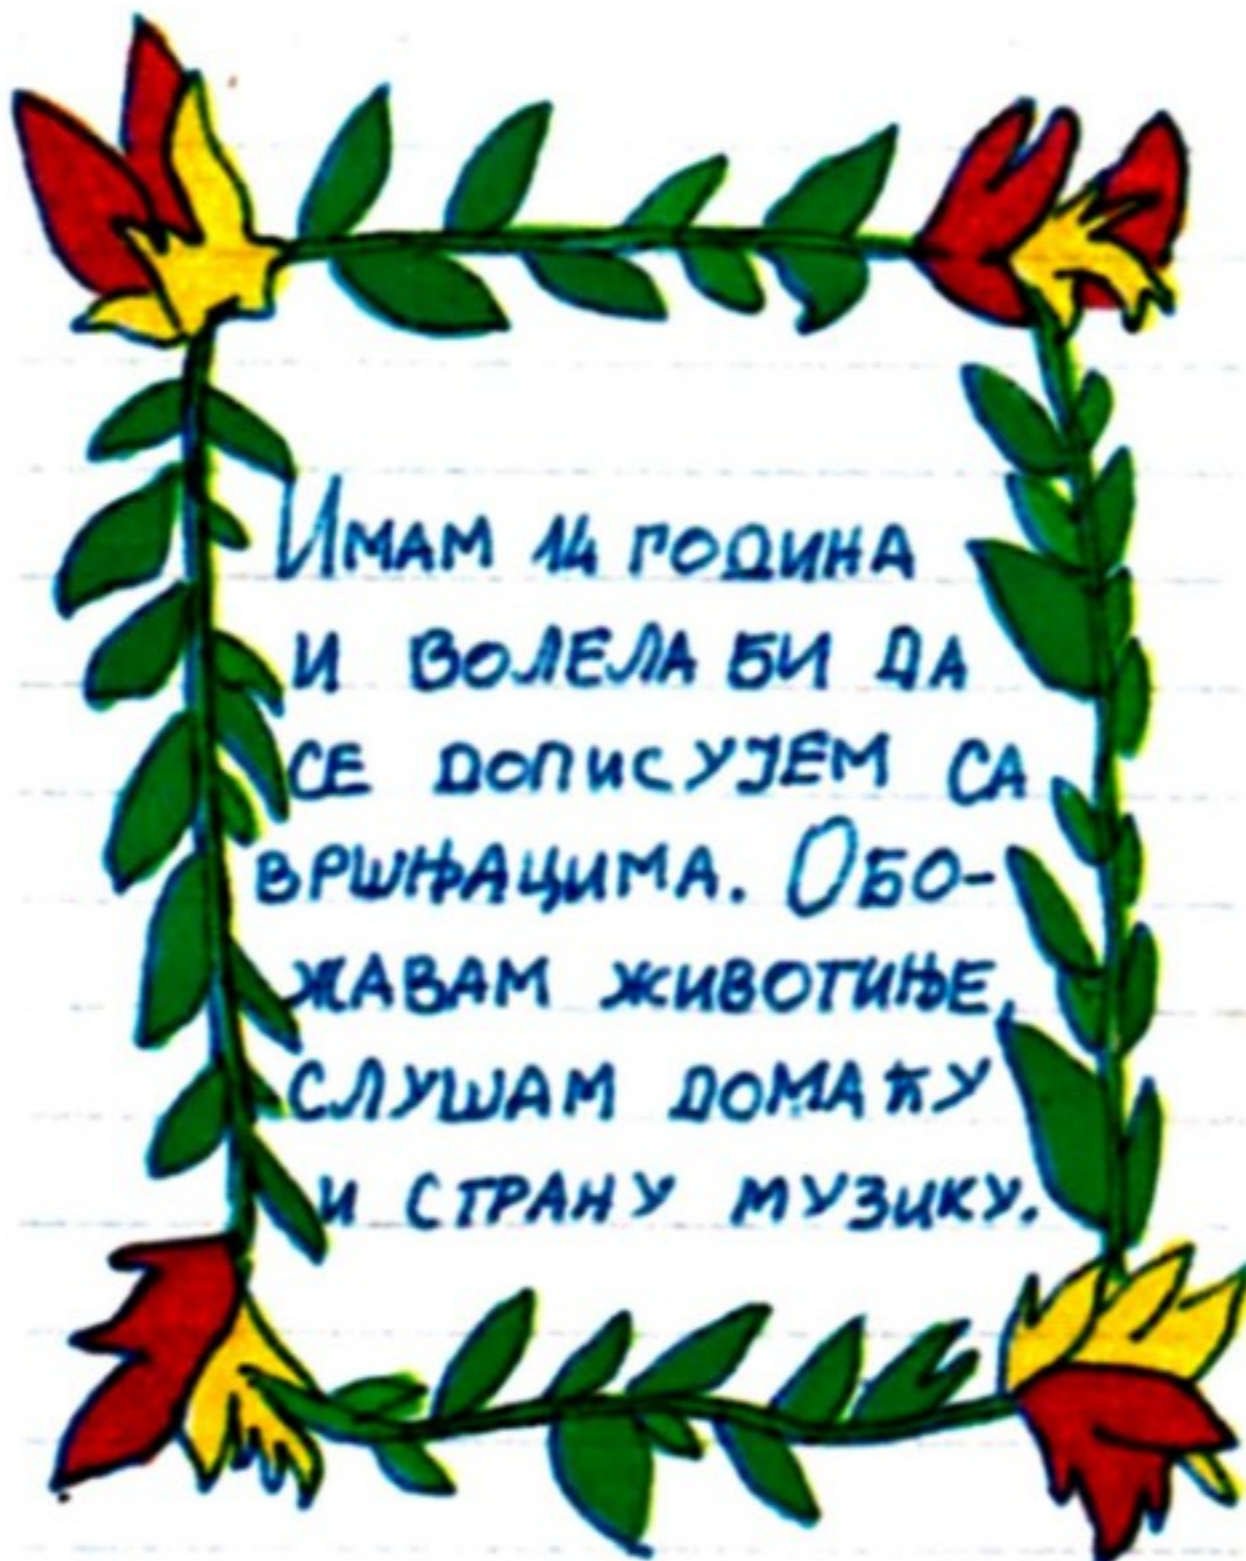 Имам 14 година
и волела би да
се дописујем са
вршњацима. Обо-
жавам животиње,
слушам домаћу
и страну музику.